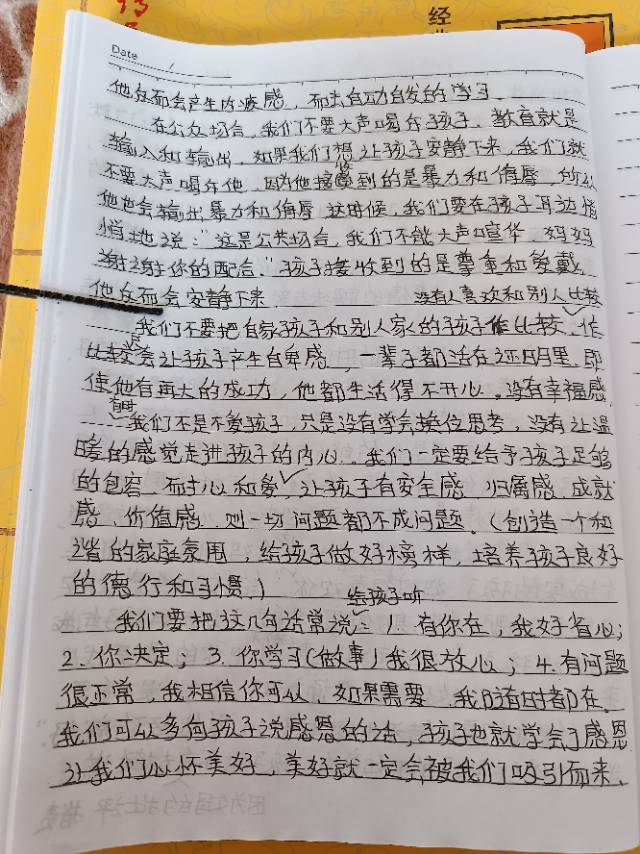 经
Date
他反而会产生内疚感，而去自动自发的学习
在公众场合，我们不要大声喝斥孩子。教育就是
输入和输出，如果我们想让孩子安静下来，我们就
不要大声喝斥他，因为他接受到的是暴力和侮辱，所以
他也会输出暴力和侮辱，这时候，我们要在孩子耳边悄
悄地说："这是公共场合，我们不能大声喧华，妈妈
谢谢你的配合。"孩子接收到的是尊重和爱戴，
他反而会安静下来
没有人喜欢和别人比较
我们不要把自家孩子和别人家的孩子作比较，作
比较会让孩子产生自卑感，一辈子都活在阴里，即
使他有再大的成功，他都生活得不开心，没有幸福感，
有时
我们不是不爱孩子，只是没有学会换位思考，没有让温
暖的感觉走进孩子的内心。我们一定要给予孩子足够
的包容、耐心和爱，让孩子有安全感、归属感、成就
感、价值感，则一切问题都不成问题。（创造一个和
谐的家庭氛围，给孩子做好榜样，培养孩子良好
的德行和习惯。）
给孩子听
我们要把这几句话常说：1. 有你在，我好省心；
2. 你决定；3. 你学习(做事)我很放心；4. 有问题
很正常，我相信你可以，如果需要，我随时都在。
我们可以多向孩子说感恩的话，孩子也就学会了感恩
让我们心怀美好，美好就一定会被我们吸引而来。